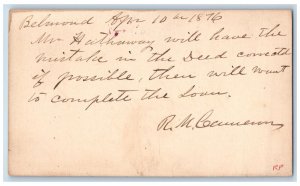 Belmond Apr 10th 1876
Mr Hathaway will have the
mistake in the Deed corrected
if possible, then will want
to complete the Loan.
R. M. Cameron
RP